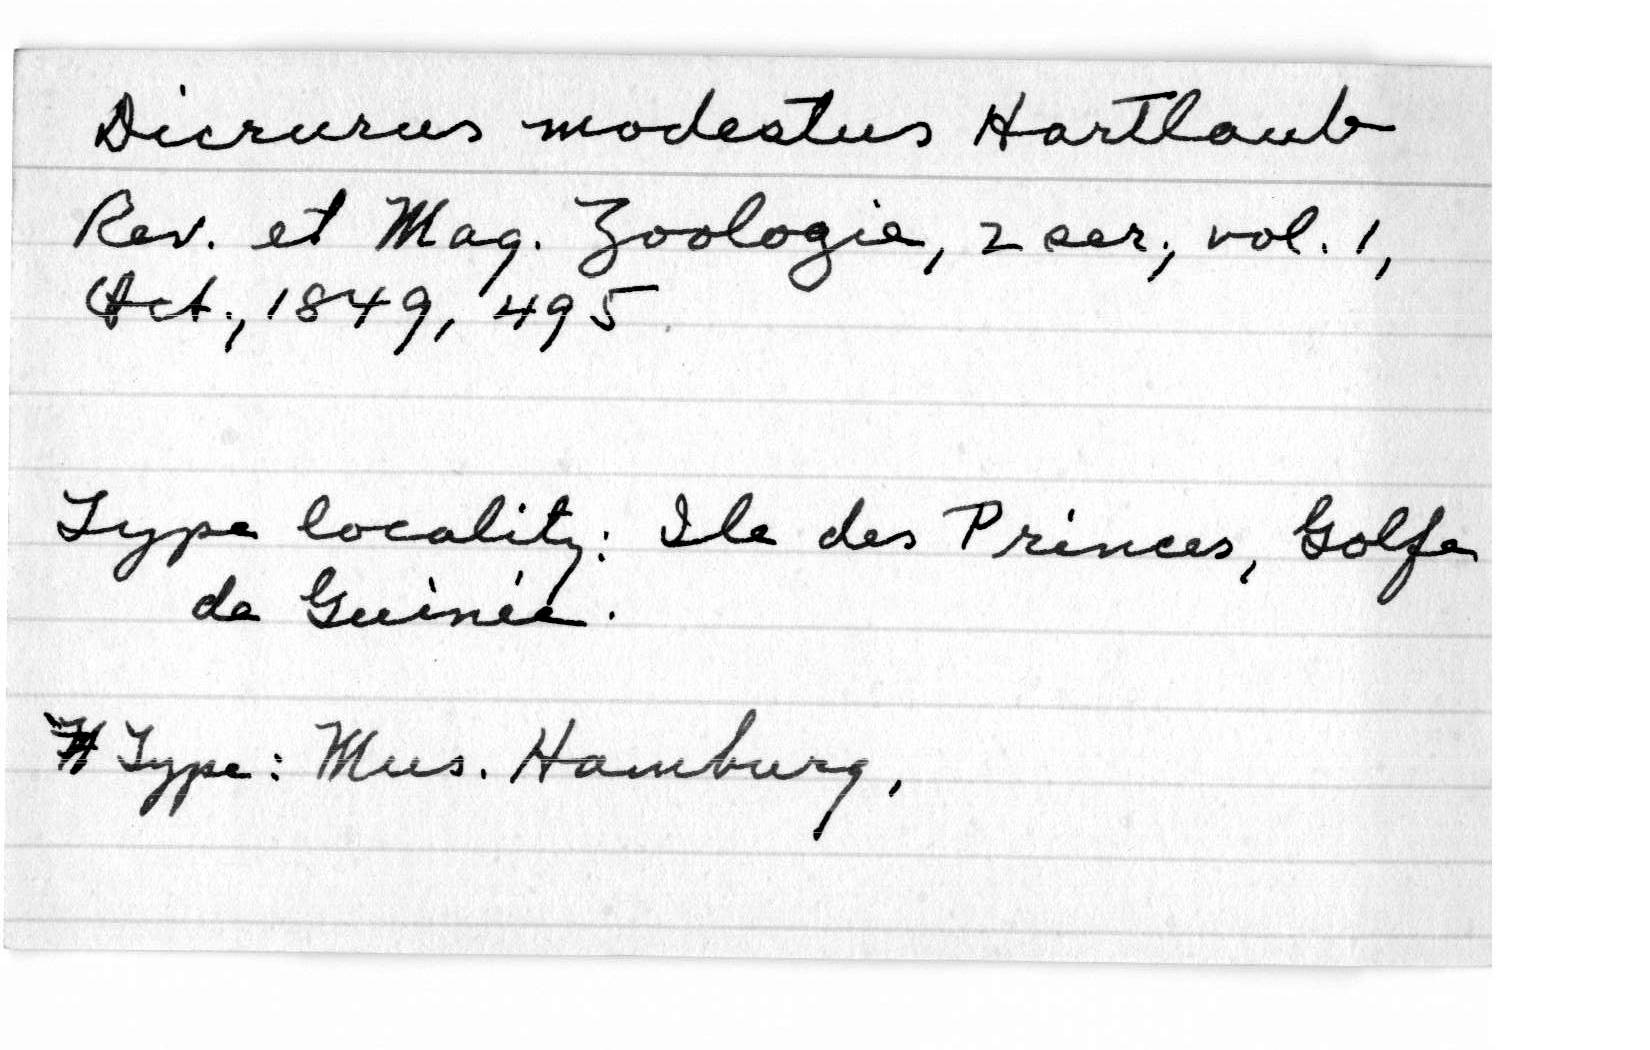 Dicrurus modestus Hartlaub
Rev. et Mag. Zoologie, 2 ser., vol. 1,
Oct., 1849, 495.
Type locality: Ile des Princes, Golfe
de Guinée.
Type: Mus. Hamburg,